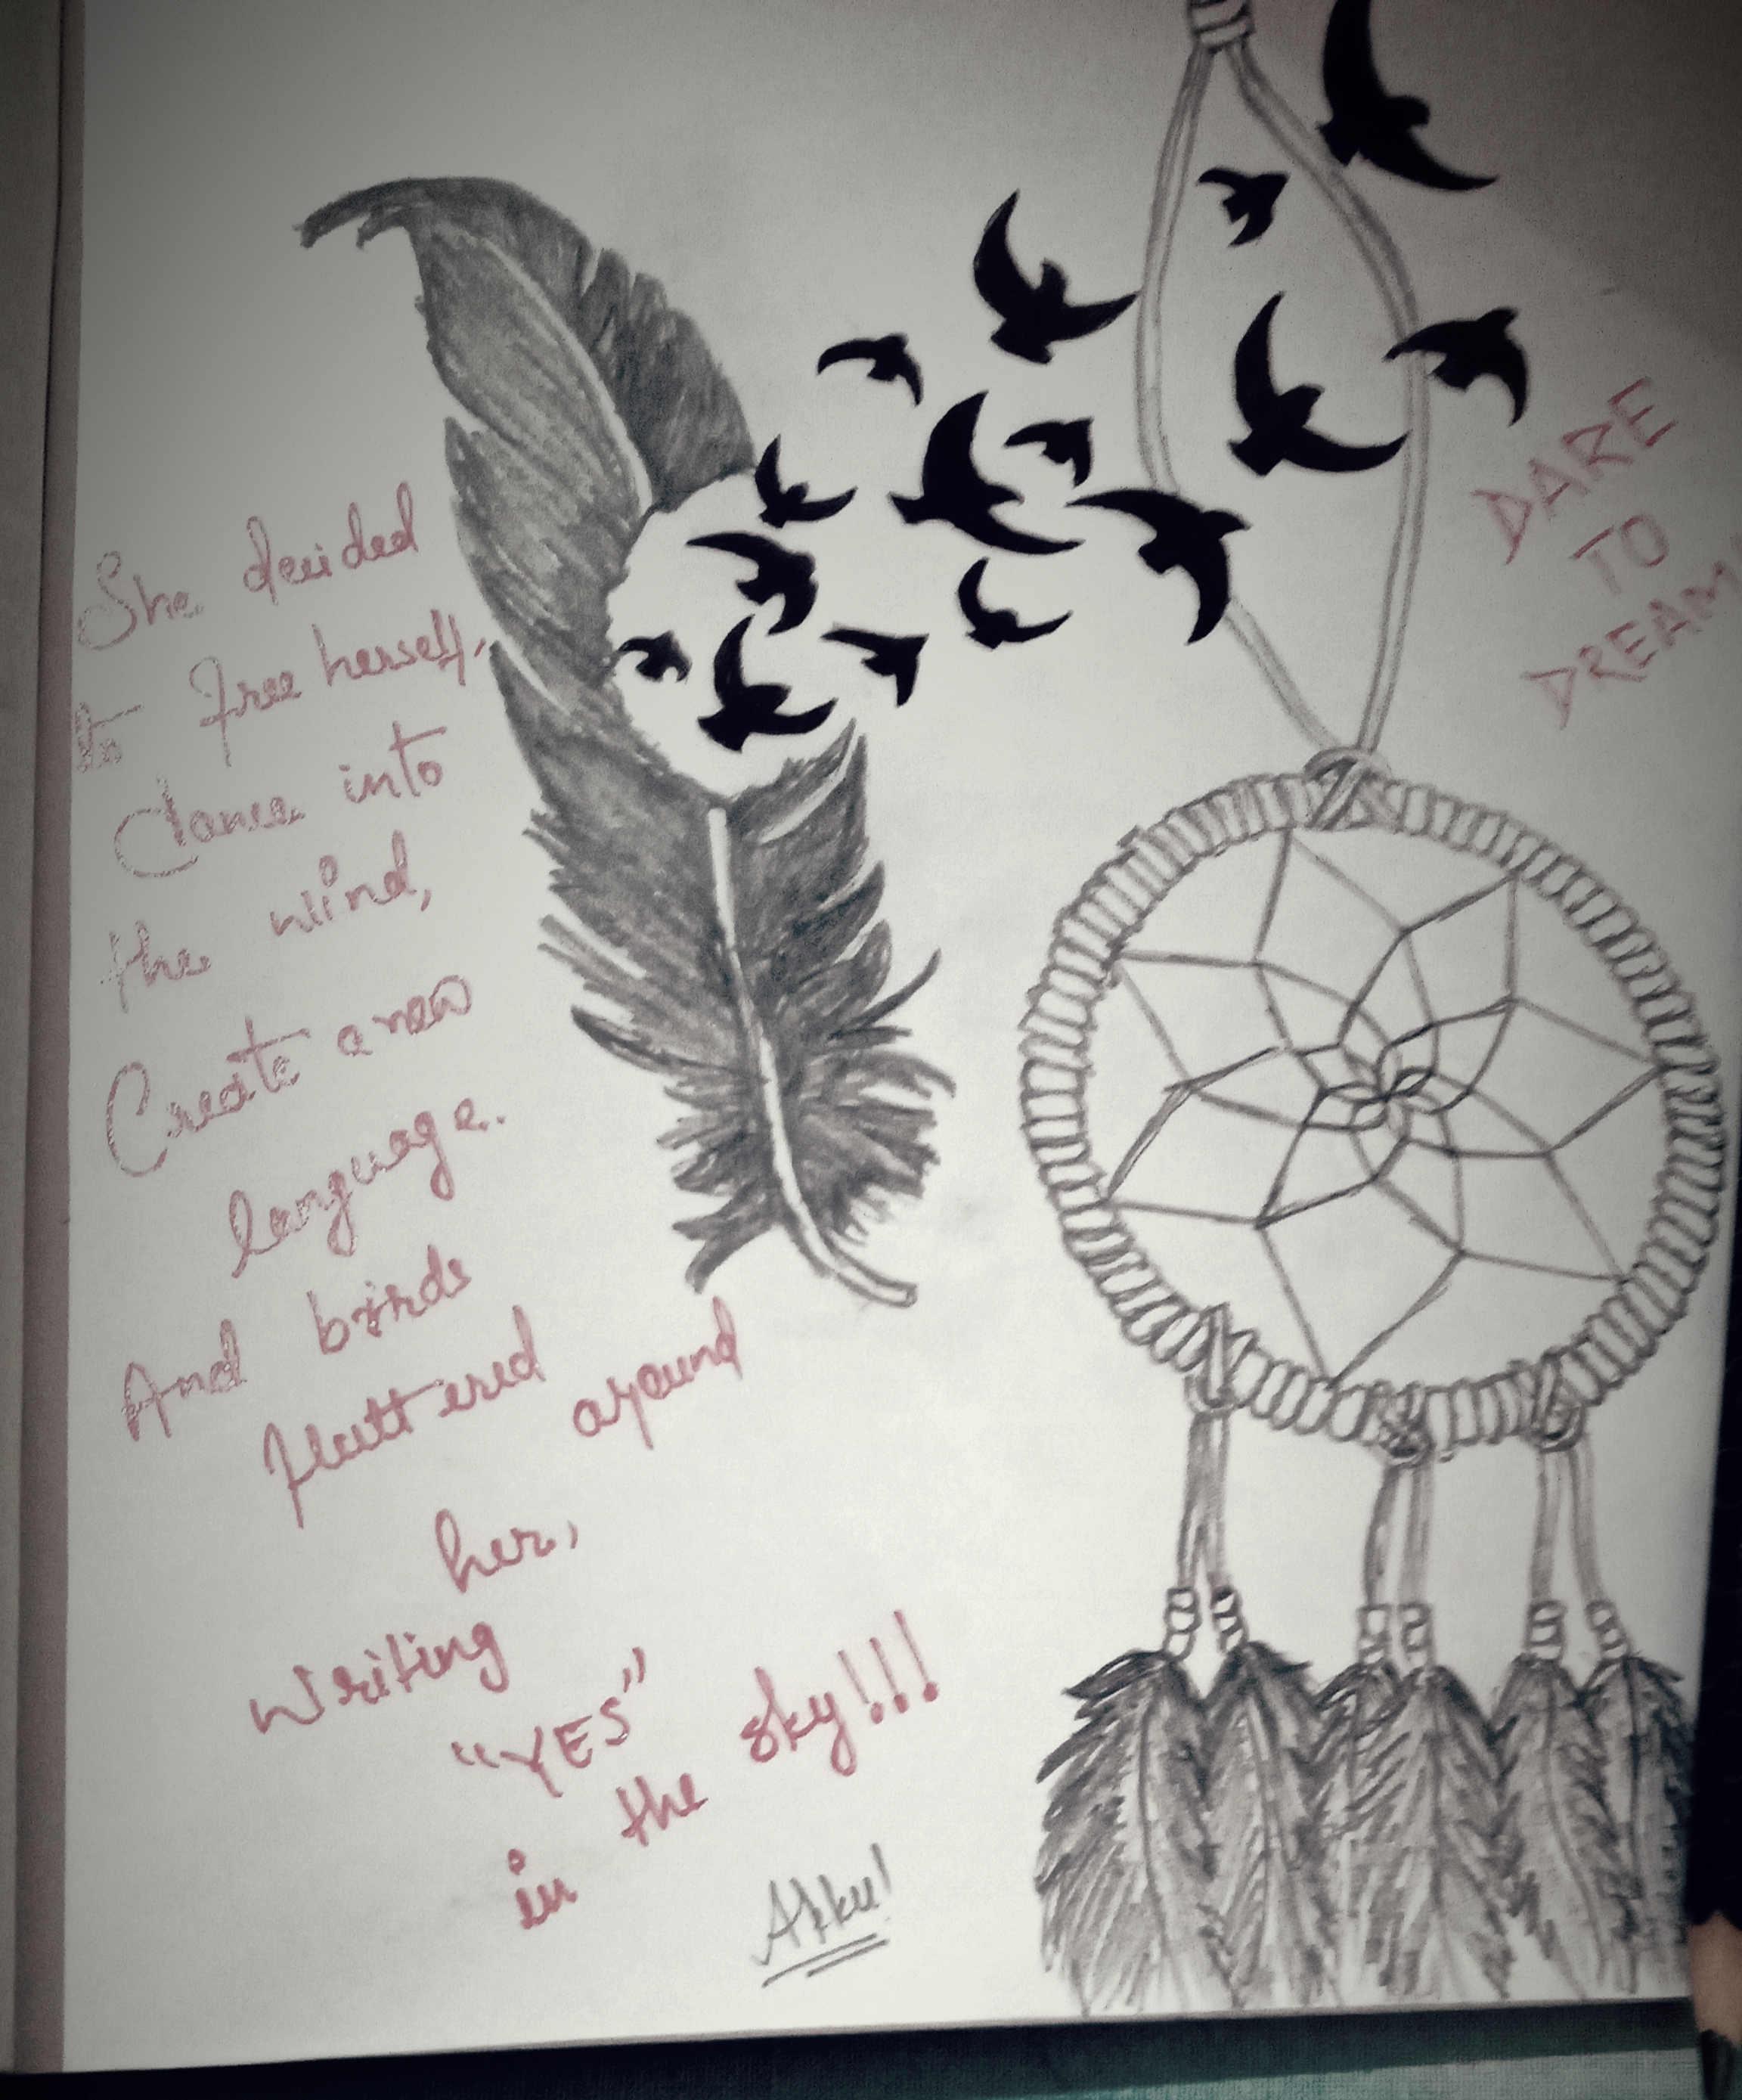 She decided
to free herself,
dance into
the wind,
Create a new
language.
And birds
fluttered around
her,
Writing
"YES"
in the sky!!!
Akku!
DARE
TO
DREAM